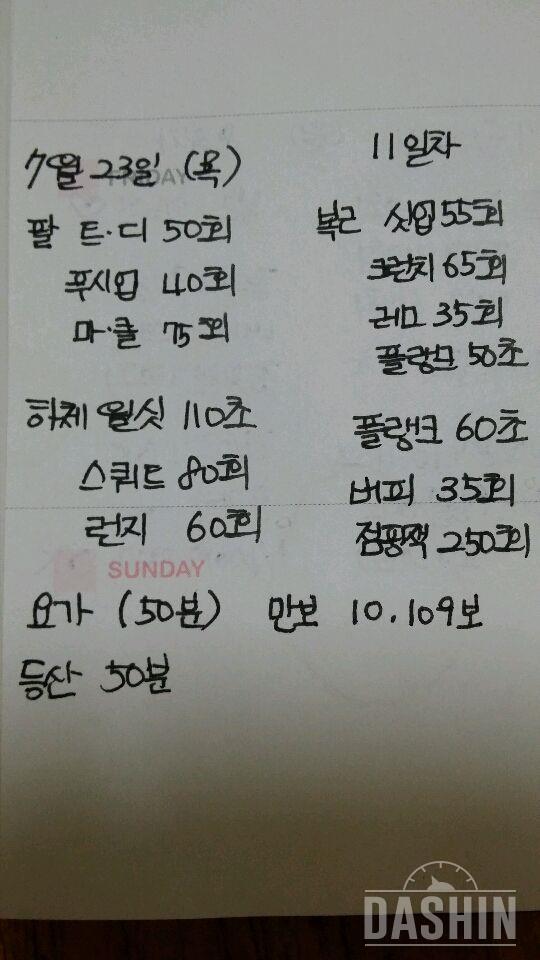 7월 23일 (목)
11일차
팔 트·디 50회
푸시업 40회
마·클 75회
복근 싯업 55회
크런치 65회
레그 35회
플랭크 50초
하체 월싯 110초
스쿼트 80회
런지 60회
플랭크 60초
버피 35회
점핑잭 250회
SUNDAY
요가 (50분) 만보 10.109보
등산 50분
DASHIN